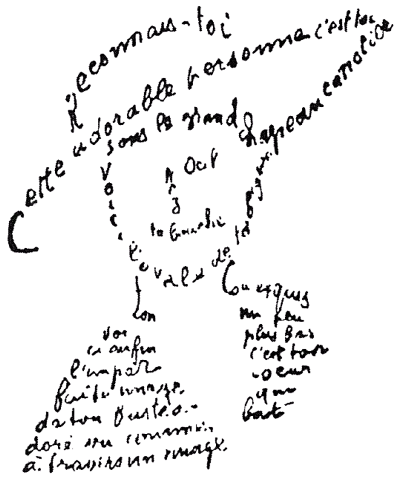 Reconnais-toi
Cette adorable personne c'est toi
sous le grand chapeau canotier
Œil
Nez
la bouche
Voici l'ovale de ta figure
Ton cou exquis
Voi
ci enfin
l'impar
faite image
de ton buste a
doré vu comme
à travers un nuage
un peu
plus bas
c'est ton
cœur
qui
bat